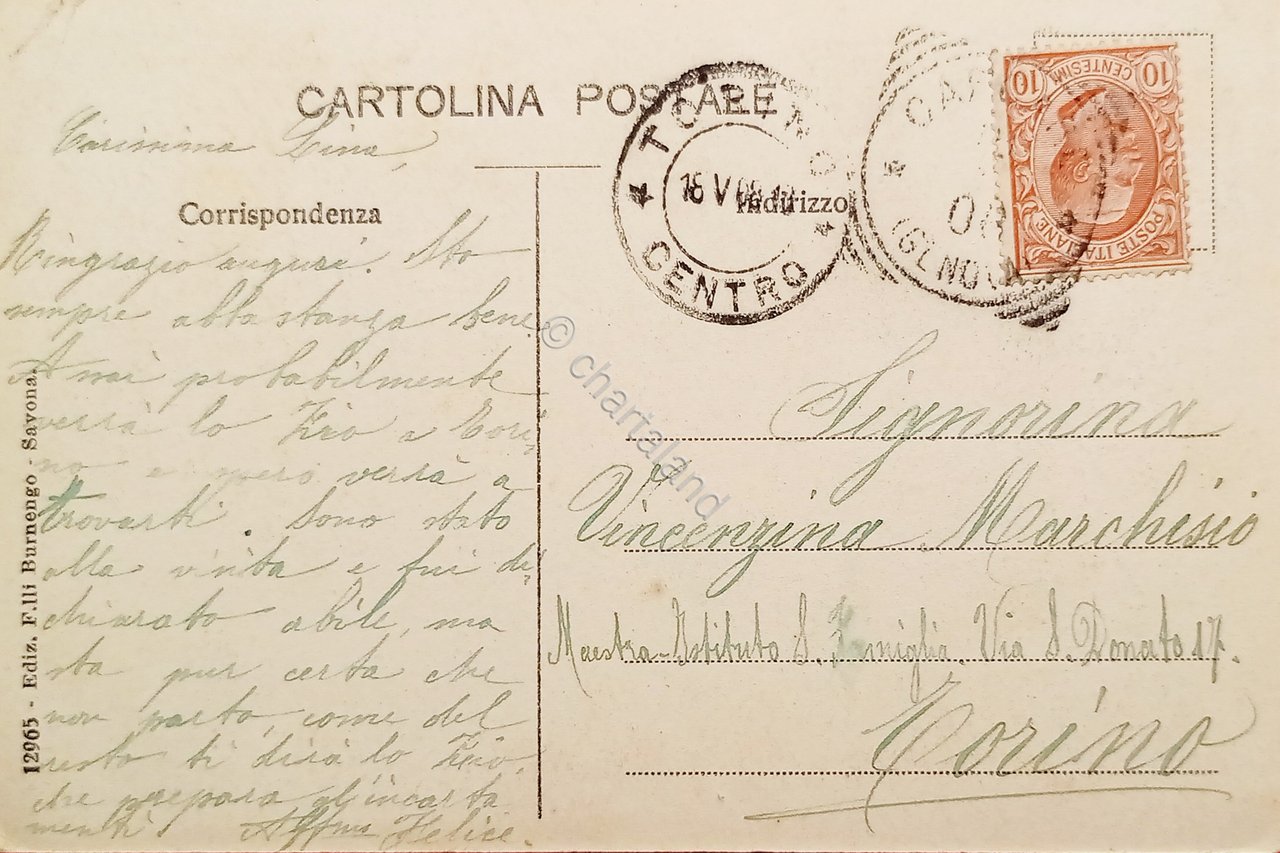 CARTOLINA POSTALE
Carissima Lina,
Corrispondenza
Ringrazio auguri. Sto
sempre abbastanza bene.
A voi probabilmente
verrà lo Zio a Tori-
no e verrà a
trovarti. Sono stato
alla visita e fui di-
chiarato abile, ma
sta pur certa che
non parto, come del
resto ti dirà lo Zio,
che prepara gl'incarta
menti Affmo Felice.
12965 - Ediz. F.lli Burnengo - Savona.
TORINO
16 V
CENTRO
Indirizzo
CA
08
(GENOVA
10 CENTESIMI 10
POSTE ITALIANE
Signorina
Vincenzina Marchisio
Maestra - Istituto S. Famiglia. Via S. Donato 17.
Torino
© chartaland